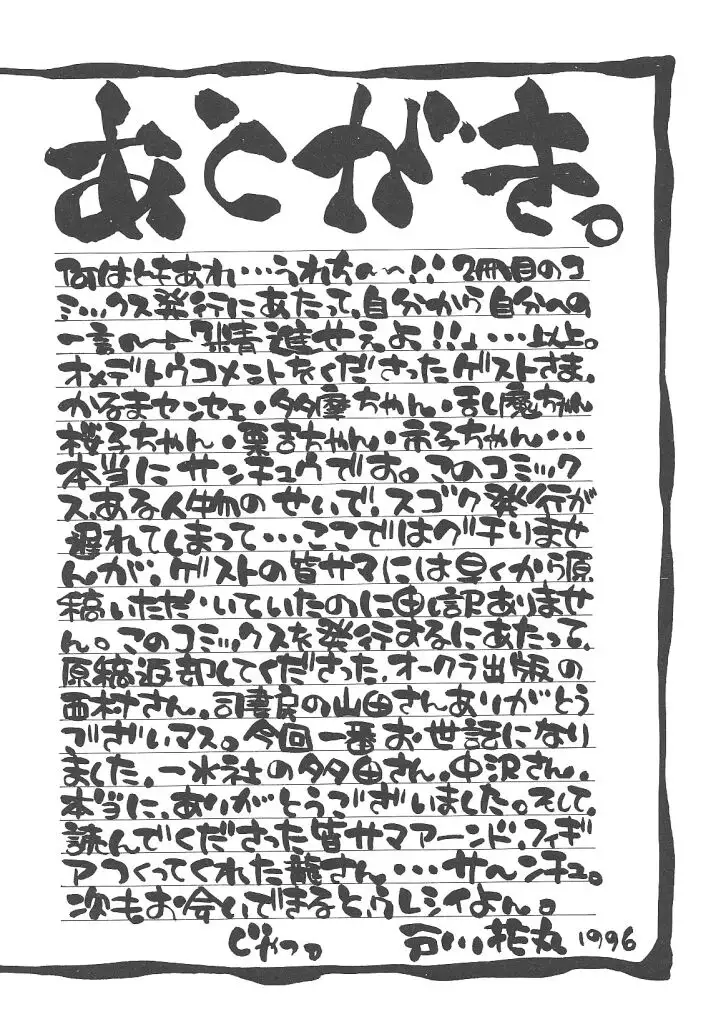 あとがき。
何はともあれ…うれちぃ〜!! 2冊目のコ
ミックス発行にあたって、自分から自分への
一言〜「精進せえよ!!」…以上。
オメデトウコメントをくださったゲストさま、
かるまセンセェ・多摩ちゃん・乱魔ちゃん
桜子ちゃん・栗吉ちゃん・市子ちゃん…
本当にサンキュウです。このコミック
ス、ある人物のせいで、スゴク発行が
遅れてしまって…ここではグチりませ
んが、ゲストの皆サマには早くから原
稿いただいていたのに申し訳ありませ
ん。このコミックスを発行するにあたって、
原稿返却してくださった、オークラ出版の
西村さん。司書房の山田さんありがとう
ございマス。今回一番お世話になり
ました、一水社の多田さん。中沢さん。
本当に、ありがとうございました。そして、
読んでくださった皆サマアーンド、フィギ
アつくってくれた龍さん…サーンキュ。
次もお会いできるとうレシイよん。
じゃっ。 石川花丸 1996